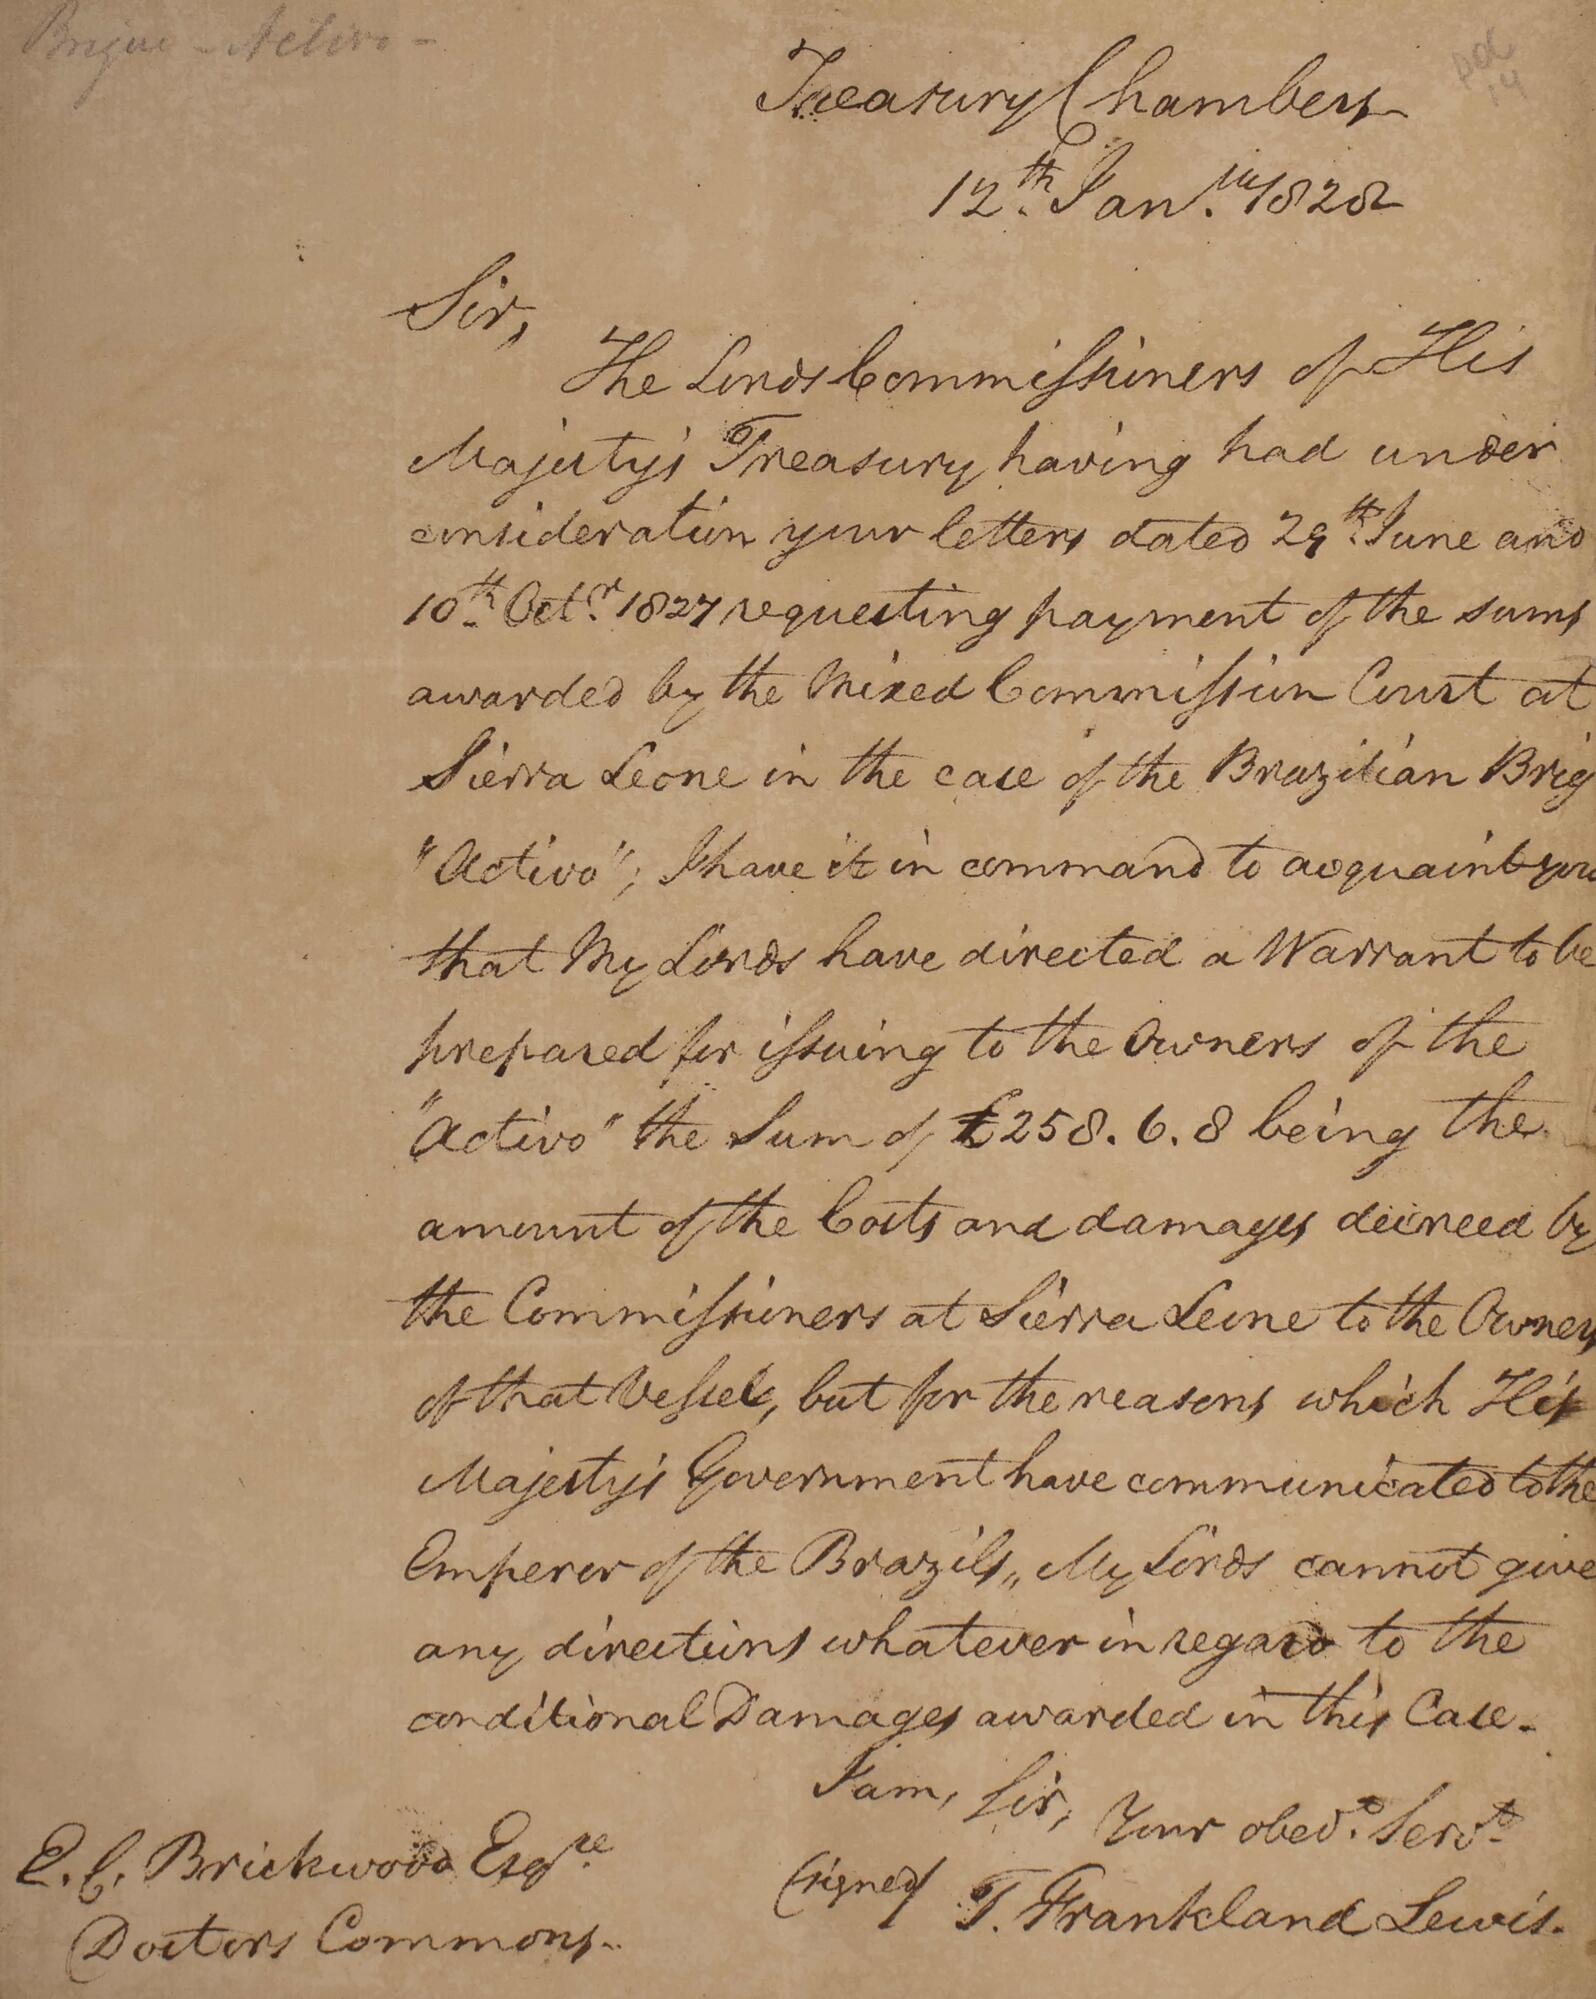 Brigue - Activo -
doc
14
Treasury Chambers
12th Jany 1828
Sir,
The Lords Commissioners of His
Majesty's Treasury having had under
consideration your letters dated 29th June and
10th Octr 1827 requesting payment of the sums
awarded by the Mixed Commission Court at
Sierra Leone in the case of the Brazilian Brig
"Activo"; I have it in command to acquaint you
that My Lords have directed a Warrant to be
prepared for issuing to the Owners of the
"Activo" the Sum of £258.6.8 being the
amount of the Costs and damages decreed by
the Commissioners at Sierra Leone to the Owners
of that Vessel, but for the reasons which His
Majesty's Government have communicated to the
Emperor of the Brazils, My Lords cannot give
any directions whatever in regard to the
conditional Damages awarded in this Case.
I am, Sir, Your obedt. Servt.
(signed) T. Frankland Lewis.
E. C. Brickwood Esqre
Doctors Commons.